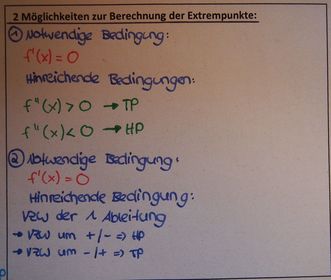 2 Möglichkeiten zur Berechnung der Extrempunkte:
① Notwendige Bedingung:
f'(x) = 0
Hinreichende Bedingungen:
f''(x) > 0 → TP
f''(x) < 0 → HP
② Notwendige Bedingung:
f'(x) = 0
Hinreichende Bedingung:
VZW der 1 Ableitung
→ VZW um +/- => HP
→ VZW um -/+ => TP